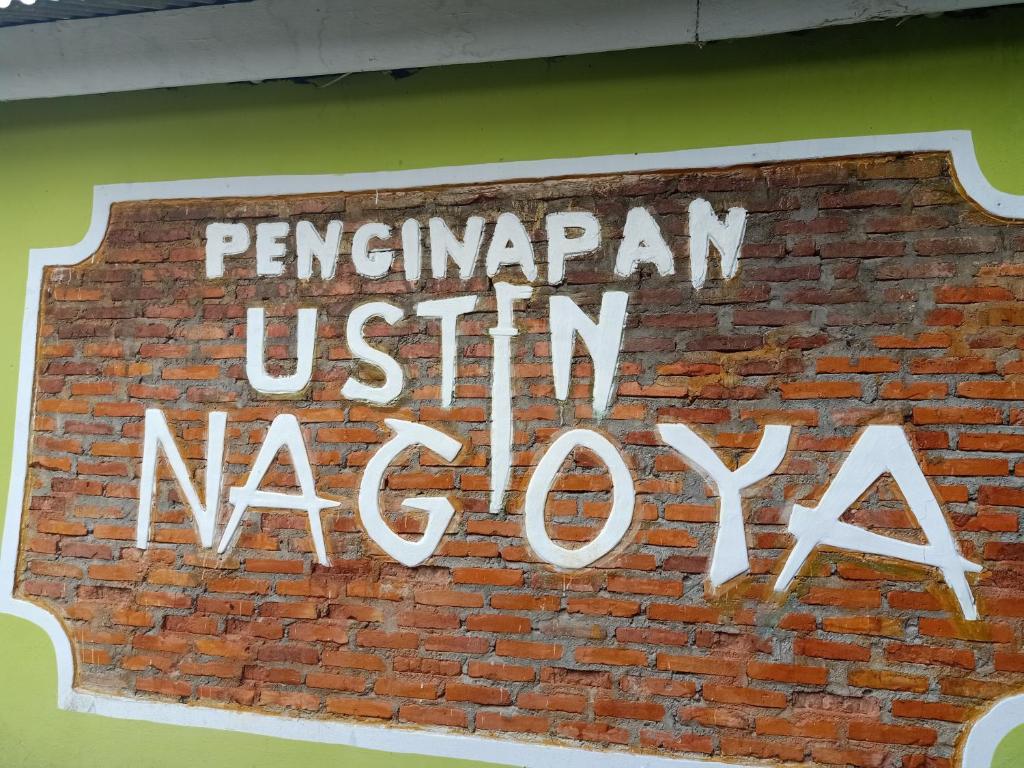 PENGINAPAN
USTIN
NAGOYA